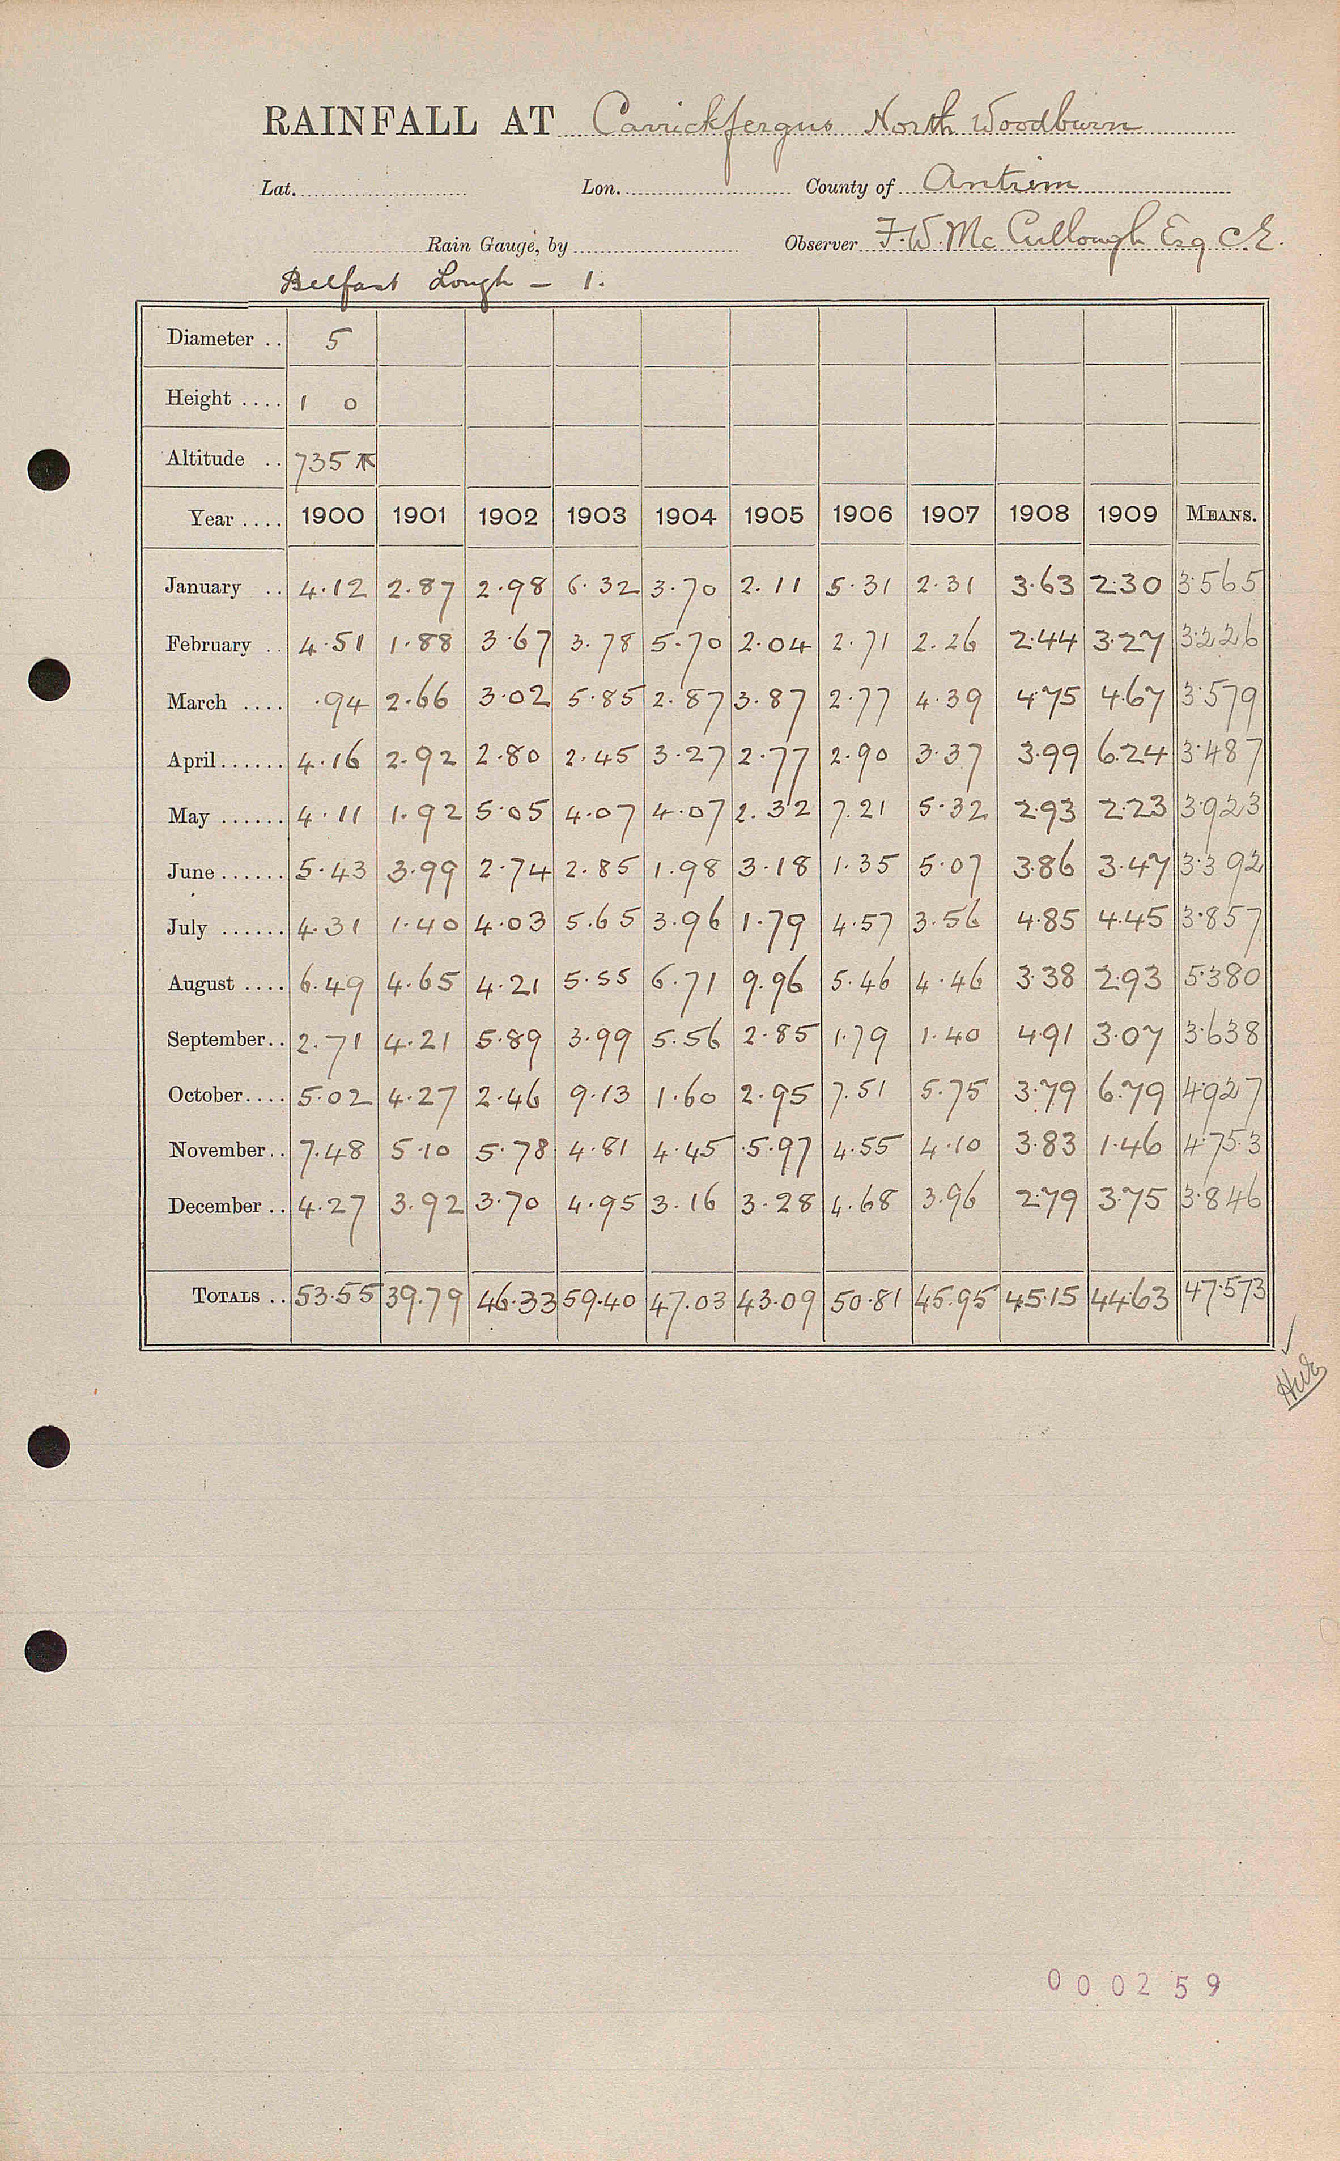 RAINFALL AT Carrickfergus North Woodburn
Lat. Lon. County of Antrim
Rain Gauge, by Observer F. W. Mc Cullough Esq C.E.
Belfast Lough – 1.
Diameter .. 5
Height .... 1 0
Altitude .. 735
Year .... 1900 1901 1902 1903 1904 1905 1906 1907 1908 1909 MEANS.
January .. 4.12 2.87 2.98 6.32 3.70 2.11 5.31 2.31 3.63 2.30 3.565
February .. 4.51 1.88 3.67 3.78 5.70 2.04 2.71 2.26 2.44 3.27 3.226
March .... .94 2.66 3.02 5.85 2.87 3.87 2.77 4.39 4.75 4.67 3.579
April ...... 4.16 2.92 2.80 2.45 3.27 2.77 2.90 3.37 3.99 6.24 3.487
May ...... 4.11 1.92 5.05 4.07 4.07 2.32 7.21 5.32 2.93 2.23 3.923
June ...... 5.43 3.99 2.74 2.85 1.98 3.18 1.35 5.07 3.86 3.47 3.392
July ...... 4.31 1.40 4.03 5.65 3.96 1.79 4.57 3.56 4.85 4.45 3.857
August .... 6.49 4.65 4.21 5.55 6.71 9.96 5.46 4.46 3.38 2.93 5.380
September .. 2.71 4.21 5.89 3.99 5.56 2.85 1.79 1.40 4.91 3.07 3.638
October .... 5.02 4.27 2.46 9.13 1.60 2.95 7.51 5.75 3.79 6.79 4.927
November .. 7.48 5.10 5.78 4.81 4.45 5.97 4.55 4.10 3.83 1.46 4.753
December .. 4.27 3.92 3.70 4.95 3.16 3.28 4.68 3.96 2.79 3.75 3.846
TOTALS .. 53.55 39.79 46.33 59.40 47.03 43.09 50.81 45.95 45.15 44.63 47.573
000259